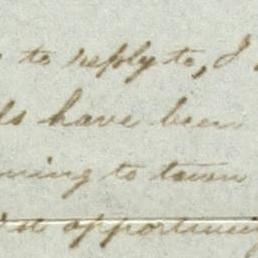 to reply to, I
have been
ning to town
opportunity